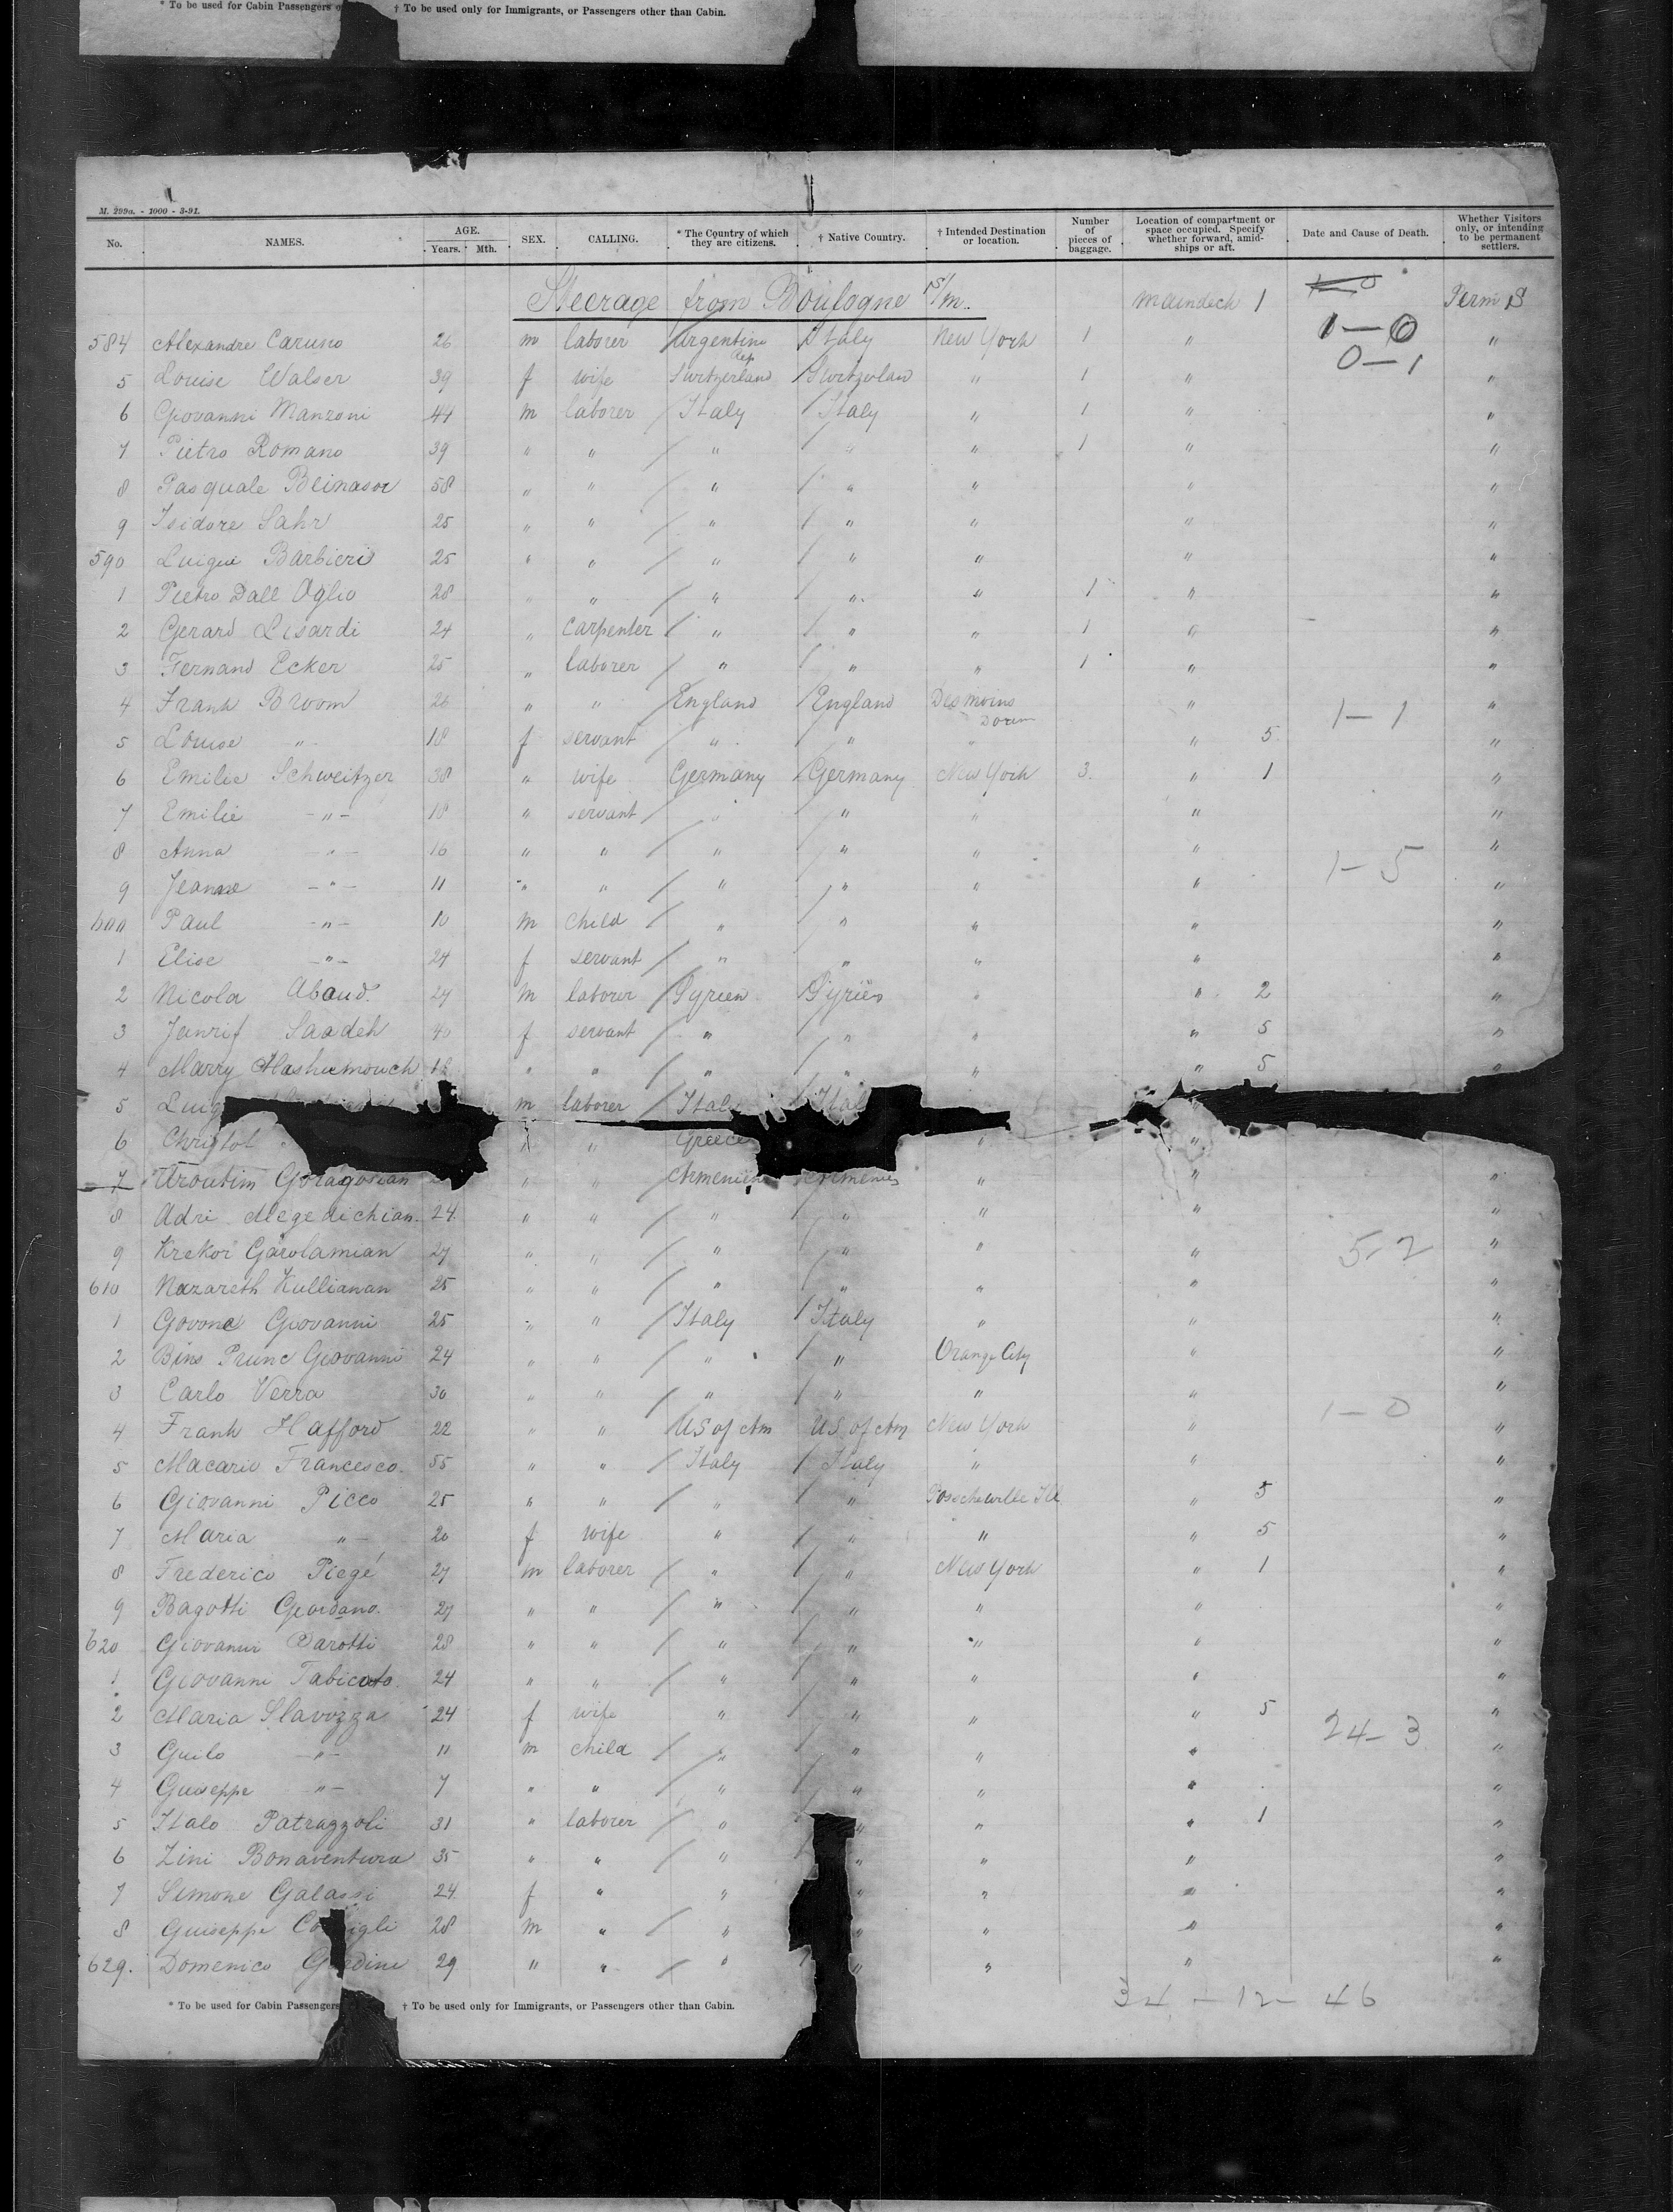 * To be used for Cabin Passengers o † To be used only for Immigrants, or Passengers other than Cabin.
M. 299a. - 1000 - 3-91.
No. NAMES. AGE. Years. Mth. SEX. CALLING. * The Country of which they are citizens. † Native Country. † Intended Destination or location. Number of pieces of baggage. Location of compartment or space occupied. Specify whether forward, amidships or aft. Date and Cause of Death. Whether Visitors only, or intending to be permanent settlers.
Steerage from Boulogne s/m. maindeck 1 Perm S
584 Alexandre Caruno 26 m laborer Argentine Rep Italy New York 1 " 1-0 "
5 Louise Walser 39 f wife Switzerland Switzerlan " 1 " 0-1 "
6 Giovanni Manzoni 44 m laborer Italy Italy " 1 " "
7 Pietro Romano 39 " " " " " 1 " "
8 Pasquale Beinasor 58 " " " " " " "
9 Isidore Sahr 25 " " " " " " "
590 Luigui Barbieris 25 " " " " " " "
1 Pietro Dall Oglio 28 " " " " " 1 " "
2 Gerard Lisardi 24 " carpenter " " " 1 " "
3 Fernand Ecker 25 " laborer " " " 1 " "
4 Frank Broom 26 " " England England Desmoins " 1-1 "
5 Louise " 18 f servant " " " " 5 "
6 Emilie Schweitzer 38 " wife Germany Germany New York 3. " 1 "
7 Emilie -"- 18 " servant " " " " "
8 Anna -"- 16 " " " " " " "
9 Jeanne -"- 11 " " " " " " 1-5 "
600 Paul -"- 10 m child " " " " "
1 Elise -"- 24 f servant " " " " "
2 Nicola Aboud. 27 m laborer Syrien Syriës " " 2 "
3 Jenrif Saadeh 40 f servant " " " " 5 "
4 Marry Hashumouch 18 " " " " " " 5 "
5 Luig m laborer Ital Ital "
6 Christol " Greece " "
7 Aroutim Goragosian " " Armenien Armenies " " "
8 Adri Megedichian. 24 " " " " " " "
9 Krekor Garolamian 27 " " " " " " 5-2 "
610 Nazareth Kullianan 25 " " " " " " "
1 Govone Giovanni 25 " " Italy Italy " " "
2 Bins Prunc Giovanni 24 " " " " Orange City " "
3 Carlo Verra 30 " " " " " " "
4 Frank Hafford 22 " " US of Am US of Am New York " 1-0 "
5 Macario Francesco. 55 " " Italy Italy " " "
6 Giovanni Picco 25 " " " " Ill " 5 "
7 Maria " 20 f wife " " " " 5 "
8 Frederico Piegé 27 m laborer " " New York " 1 "
9 Bagotti Giordano. 27 " " " " " " "
620 Giovanni Barotti 28 " " " " " " "
1 Giovanni Tabicoto. 24 " " " " " " "
2 Maria Slavozza 24 f wife " " " " 5 24-3 "
3 Guilo -"- 11 m child " " " " "
4 Guiseppe -"- 7 " " " " " " "
5 Italo Patrazzoli 31 " laborer " " " " 1 "
6 Zini Bonaventura 35 " " " " " " "
7 Simone Galassi 24 f " " " " " "
8 Guiseppe Co igli 28 m " " " " " "
629. Domenico G dini 29 " " " " " " "
* To be used for Cabin Passengers † To be used only for Immigrants, or Passengers other than Cabin.
34 - 12 - 46